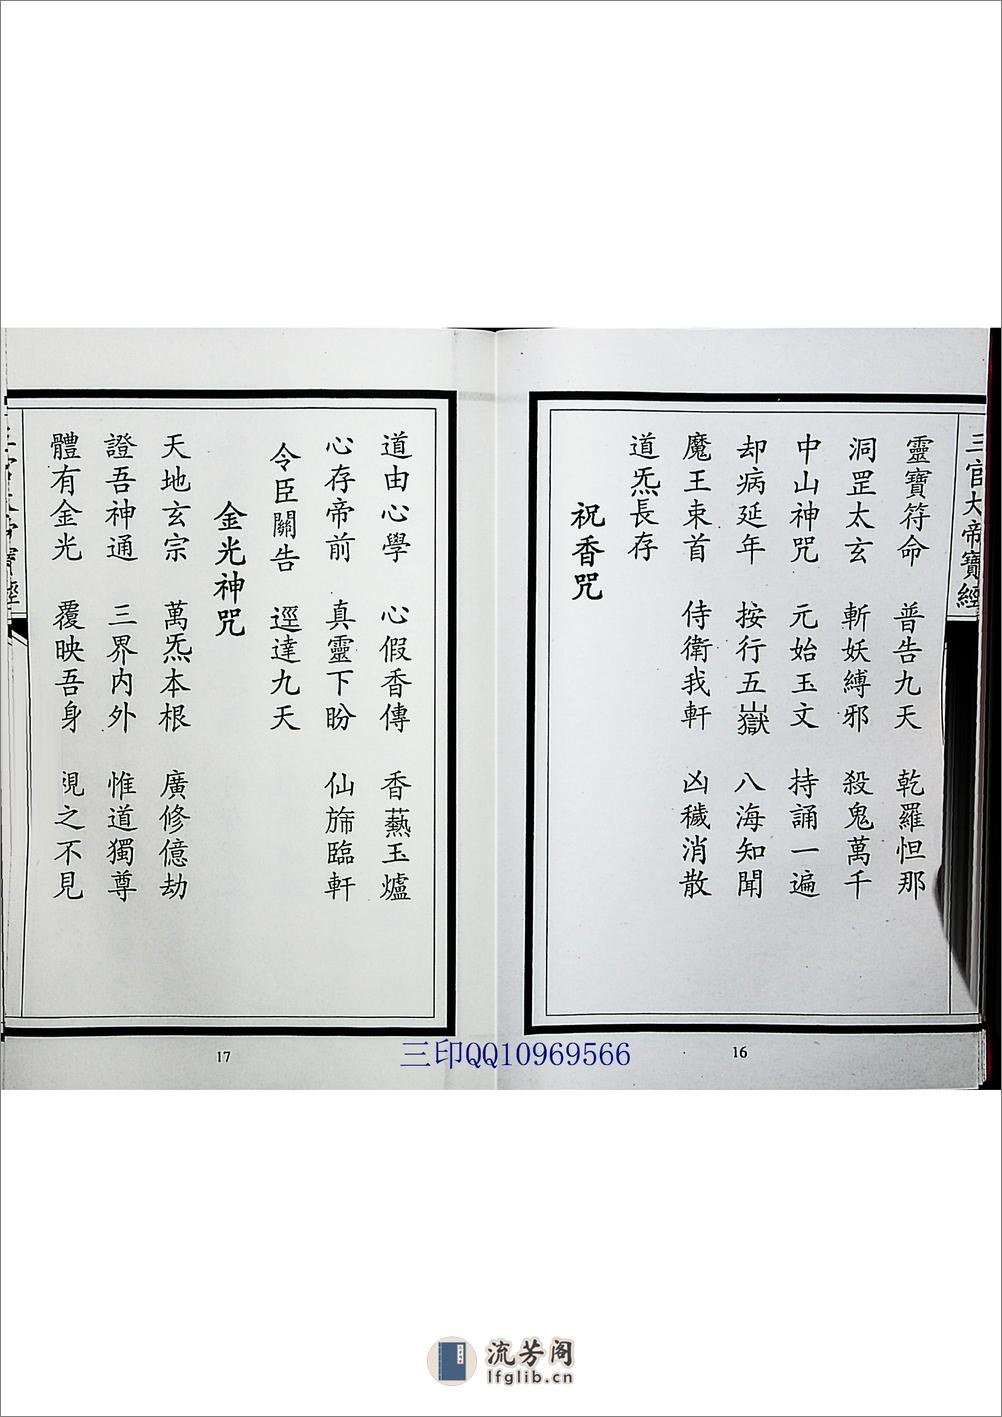 三官大帝寶經
靈寶符命　普告九天　乾羅怛那
洞罡太玄　斬妖縛邪　殺鬼萬千
中山神咒　元始玉文　持誦一遍
却病延年　按行五嶽　八海知聞
魔王束首　侍衛我軒　凶穢消散
道炁長存
祝香咒
16
道由心學　心假香傳　香爇玉爐
心存帝前　真靈下盼　仙旆臨軒
令臣關告　逕達九天
金光神咒
天地玄宗　萬炁本根　廣修億劫
證吾神通　三界内外　惟道獨尊
體有金光　覆映吾身　視之不見
三官大帝寶經
17
三印QQ10969566
流芳阁
lfglib.cn